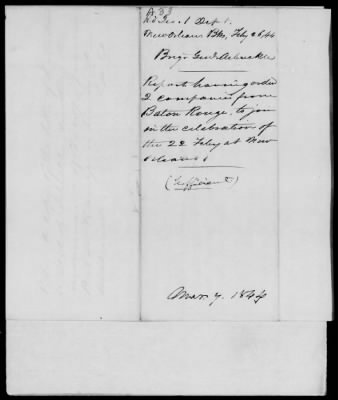 A. 53
Hd Qrs. 1 Dept.
New Orleans Bks, Feby 26/44
Brigr Genl Arbuckle
Report having ordered
2 companies from
Baton Rouge, to join
in the celebration of
the 22 Feby at New
Orleans
Mar 7. 1844